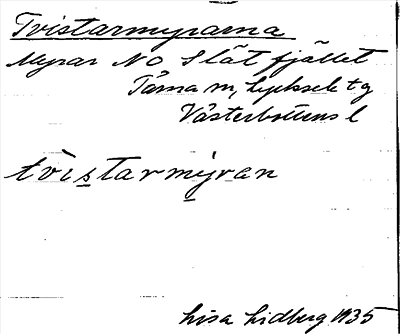 Tvistarmyrarna
Myrar NO Slåtfjället
Tärna sn, Lycksele tg
Västerbottens l
tv̀istarmýran
Lisa Lidberg 1935